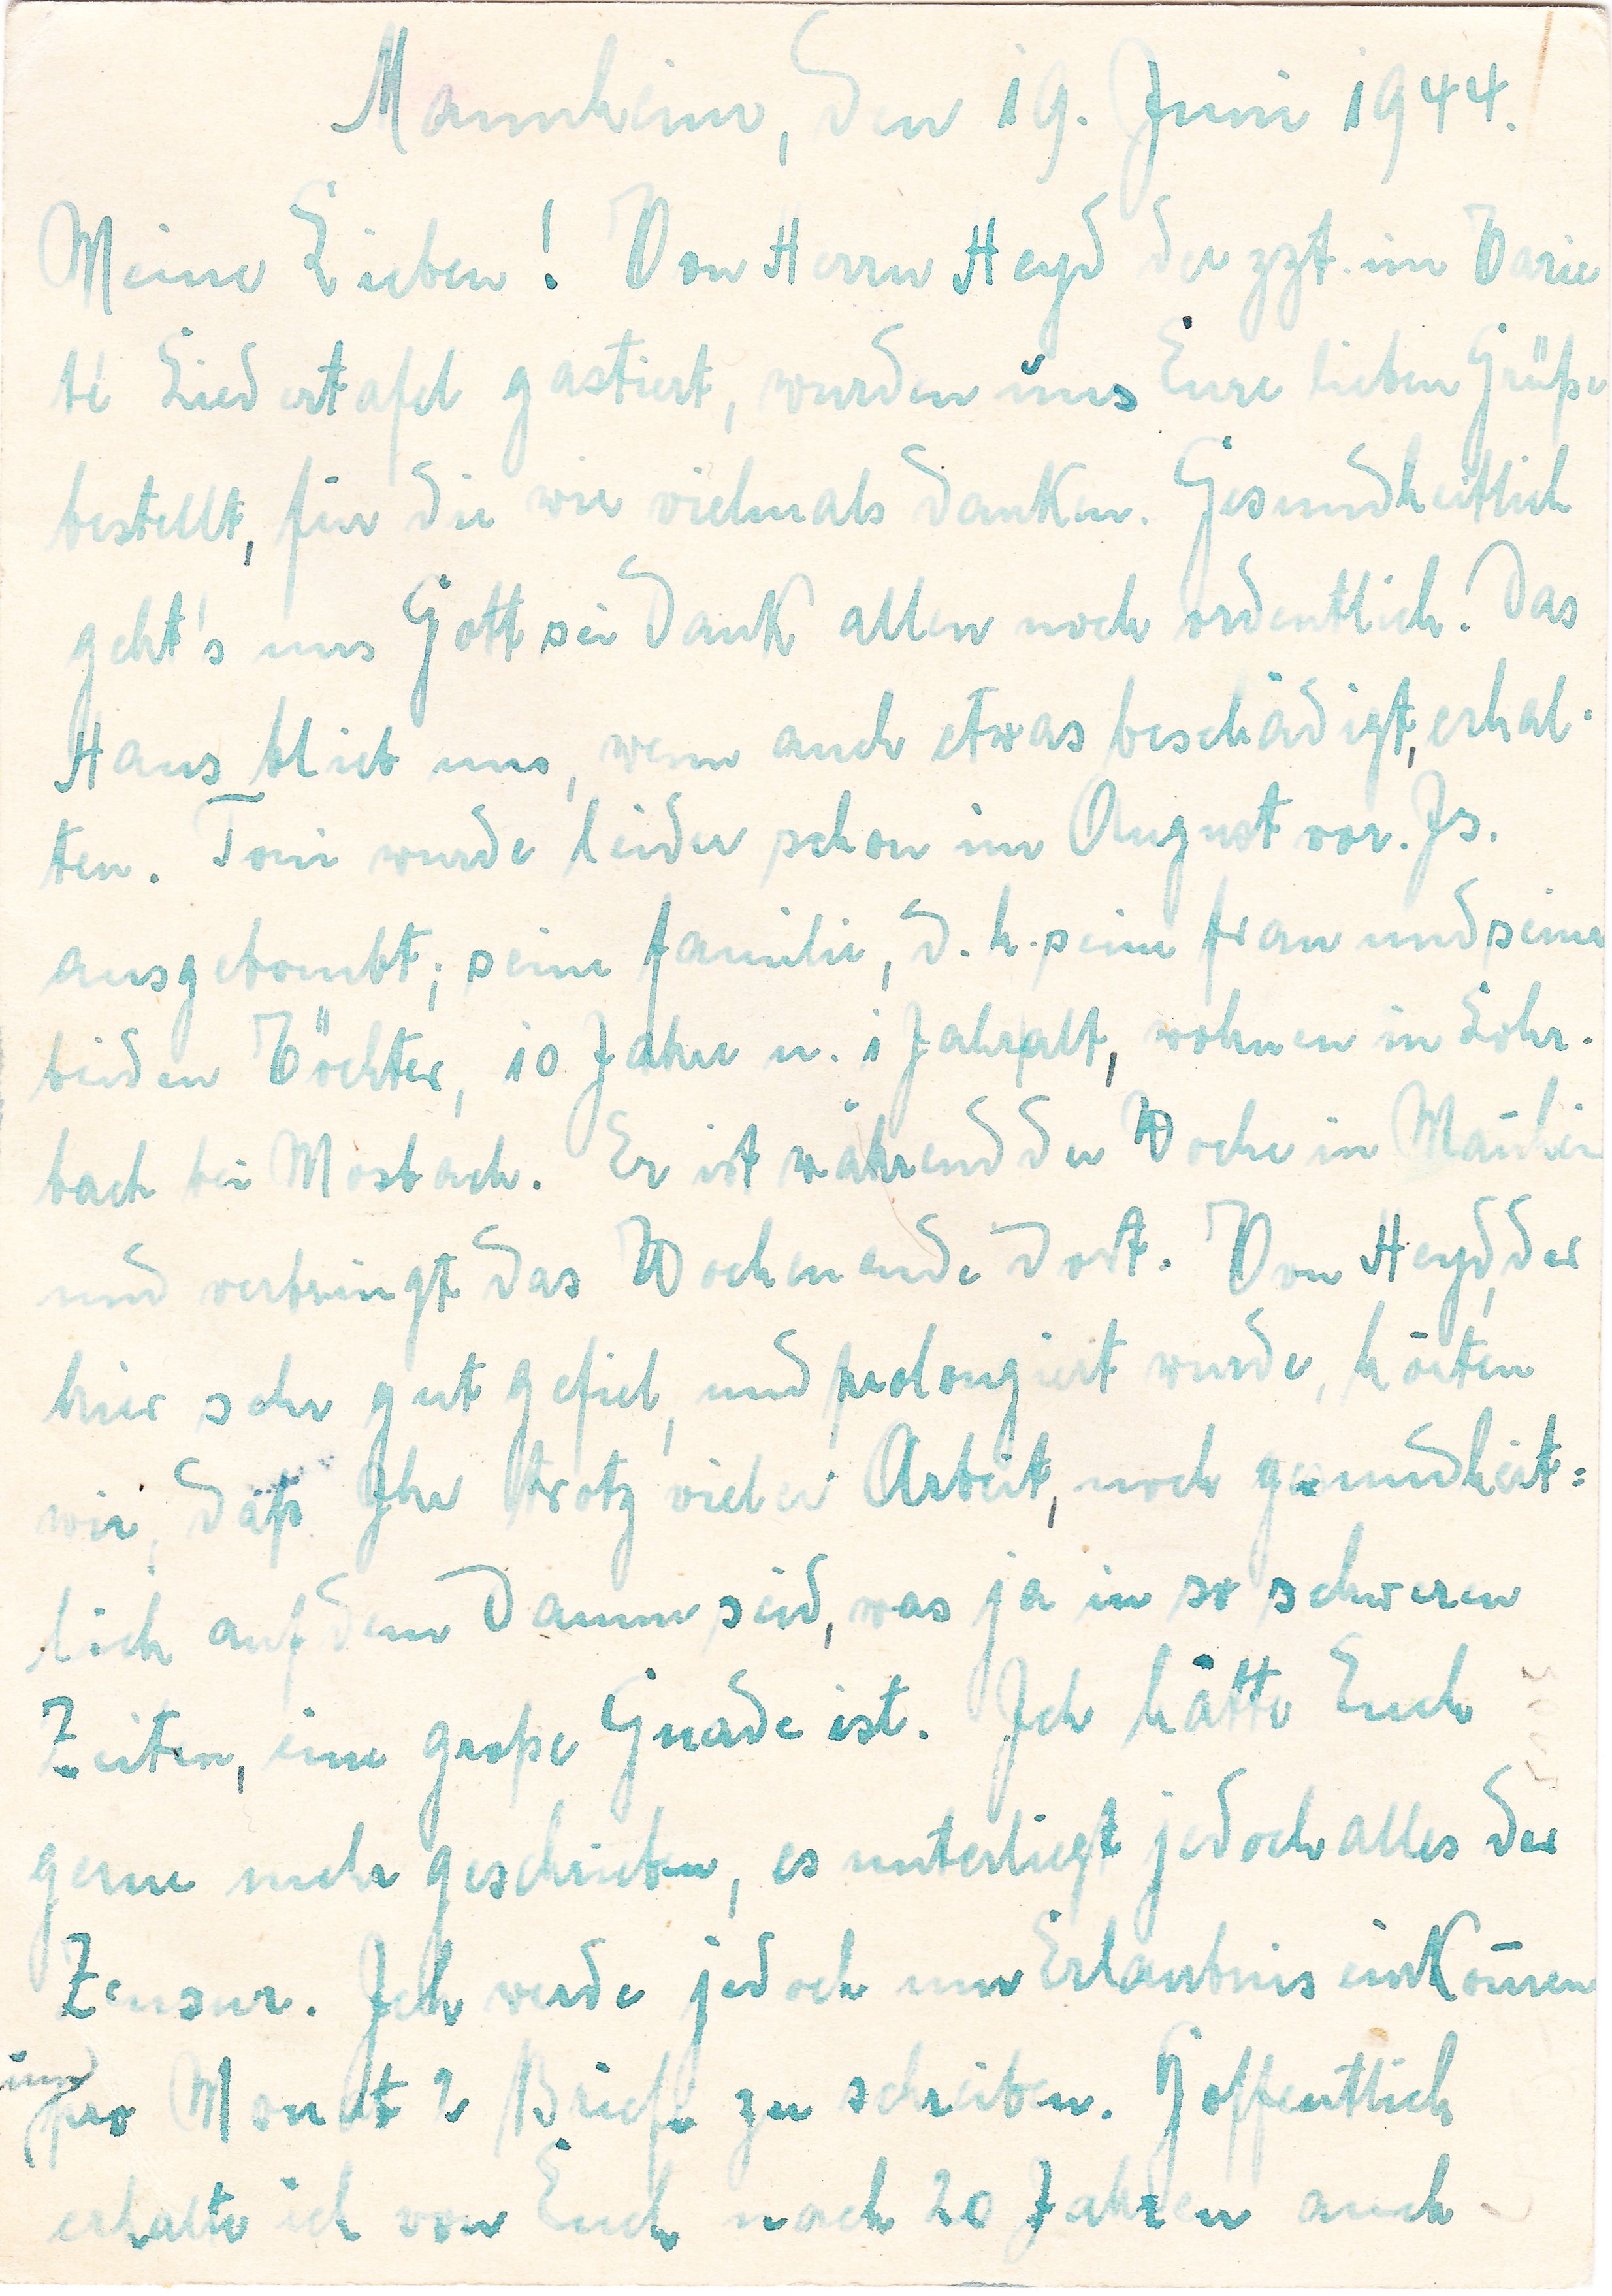 Mannheim, den 19. Juni 1944.
Meine Lieben! Von Herrn Heyd der zzt. im Varie
té Liedertafel gastiert, wurden uns Eure lieben Grüße
bestellt, für die wir vielmals danken. Gesundheitlich
geht's uns Gott sei Dank allen noch ordentlich. Das
Haus blieb uns, wenn auch etwas beschädigt, erhal-
ten. Toni wurde leider schon im August vor. Js.
ausgebombt; seine Familie, d. h. seine Frau und seine
beiden Töchter, 10 Jahre u. 1 Jahr alt, wohnen in Lohr-
bach bei Mosbach. Er ist während der Woche in Mañhei
und verbringt das Wochenende dort. Von Heyd, der
hier sehr gut gefiel, und prolongiert wurde, hörten
wir, daß Ihr trotz vieler Arbeit, noch gesundheit=
lich auf dem Damm seid, was ja in so schweren
Zeiten, eine große Gnade ist. Ich hätte Euch
gerne mehr geschrieben, es unterliegt jedoch alles der
Zensur. Ich werde jedoch um Erlaubnis einkom̄en
um
pro Monat 2 Briefe zu schreiben. Hoffentlich
erhalte ich von Euch nach 20 Jahren auch